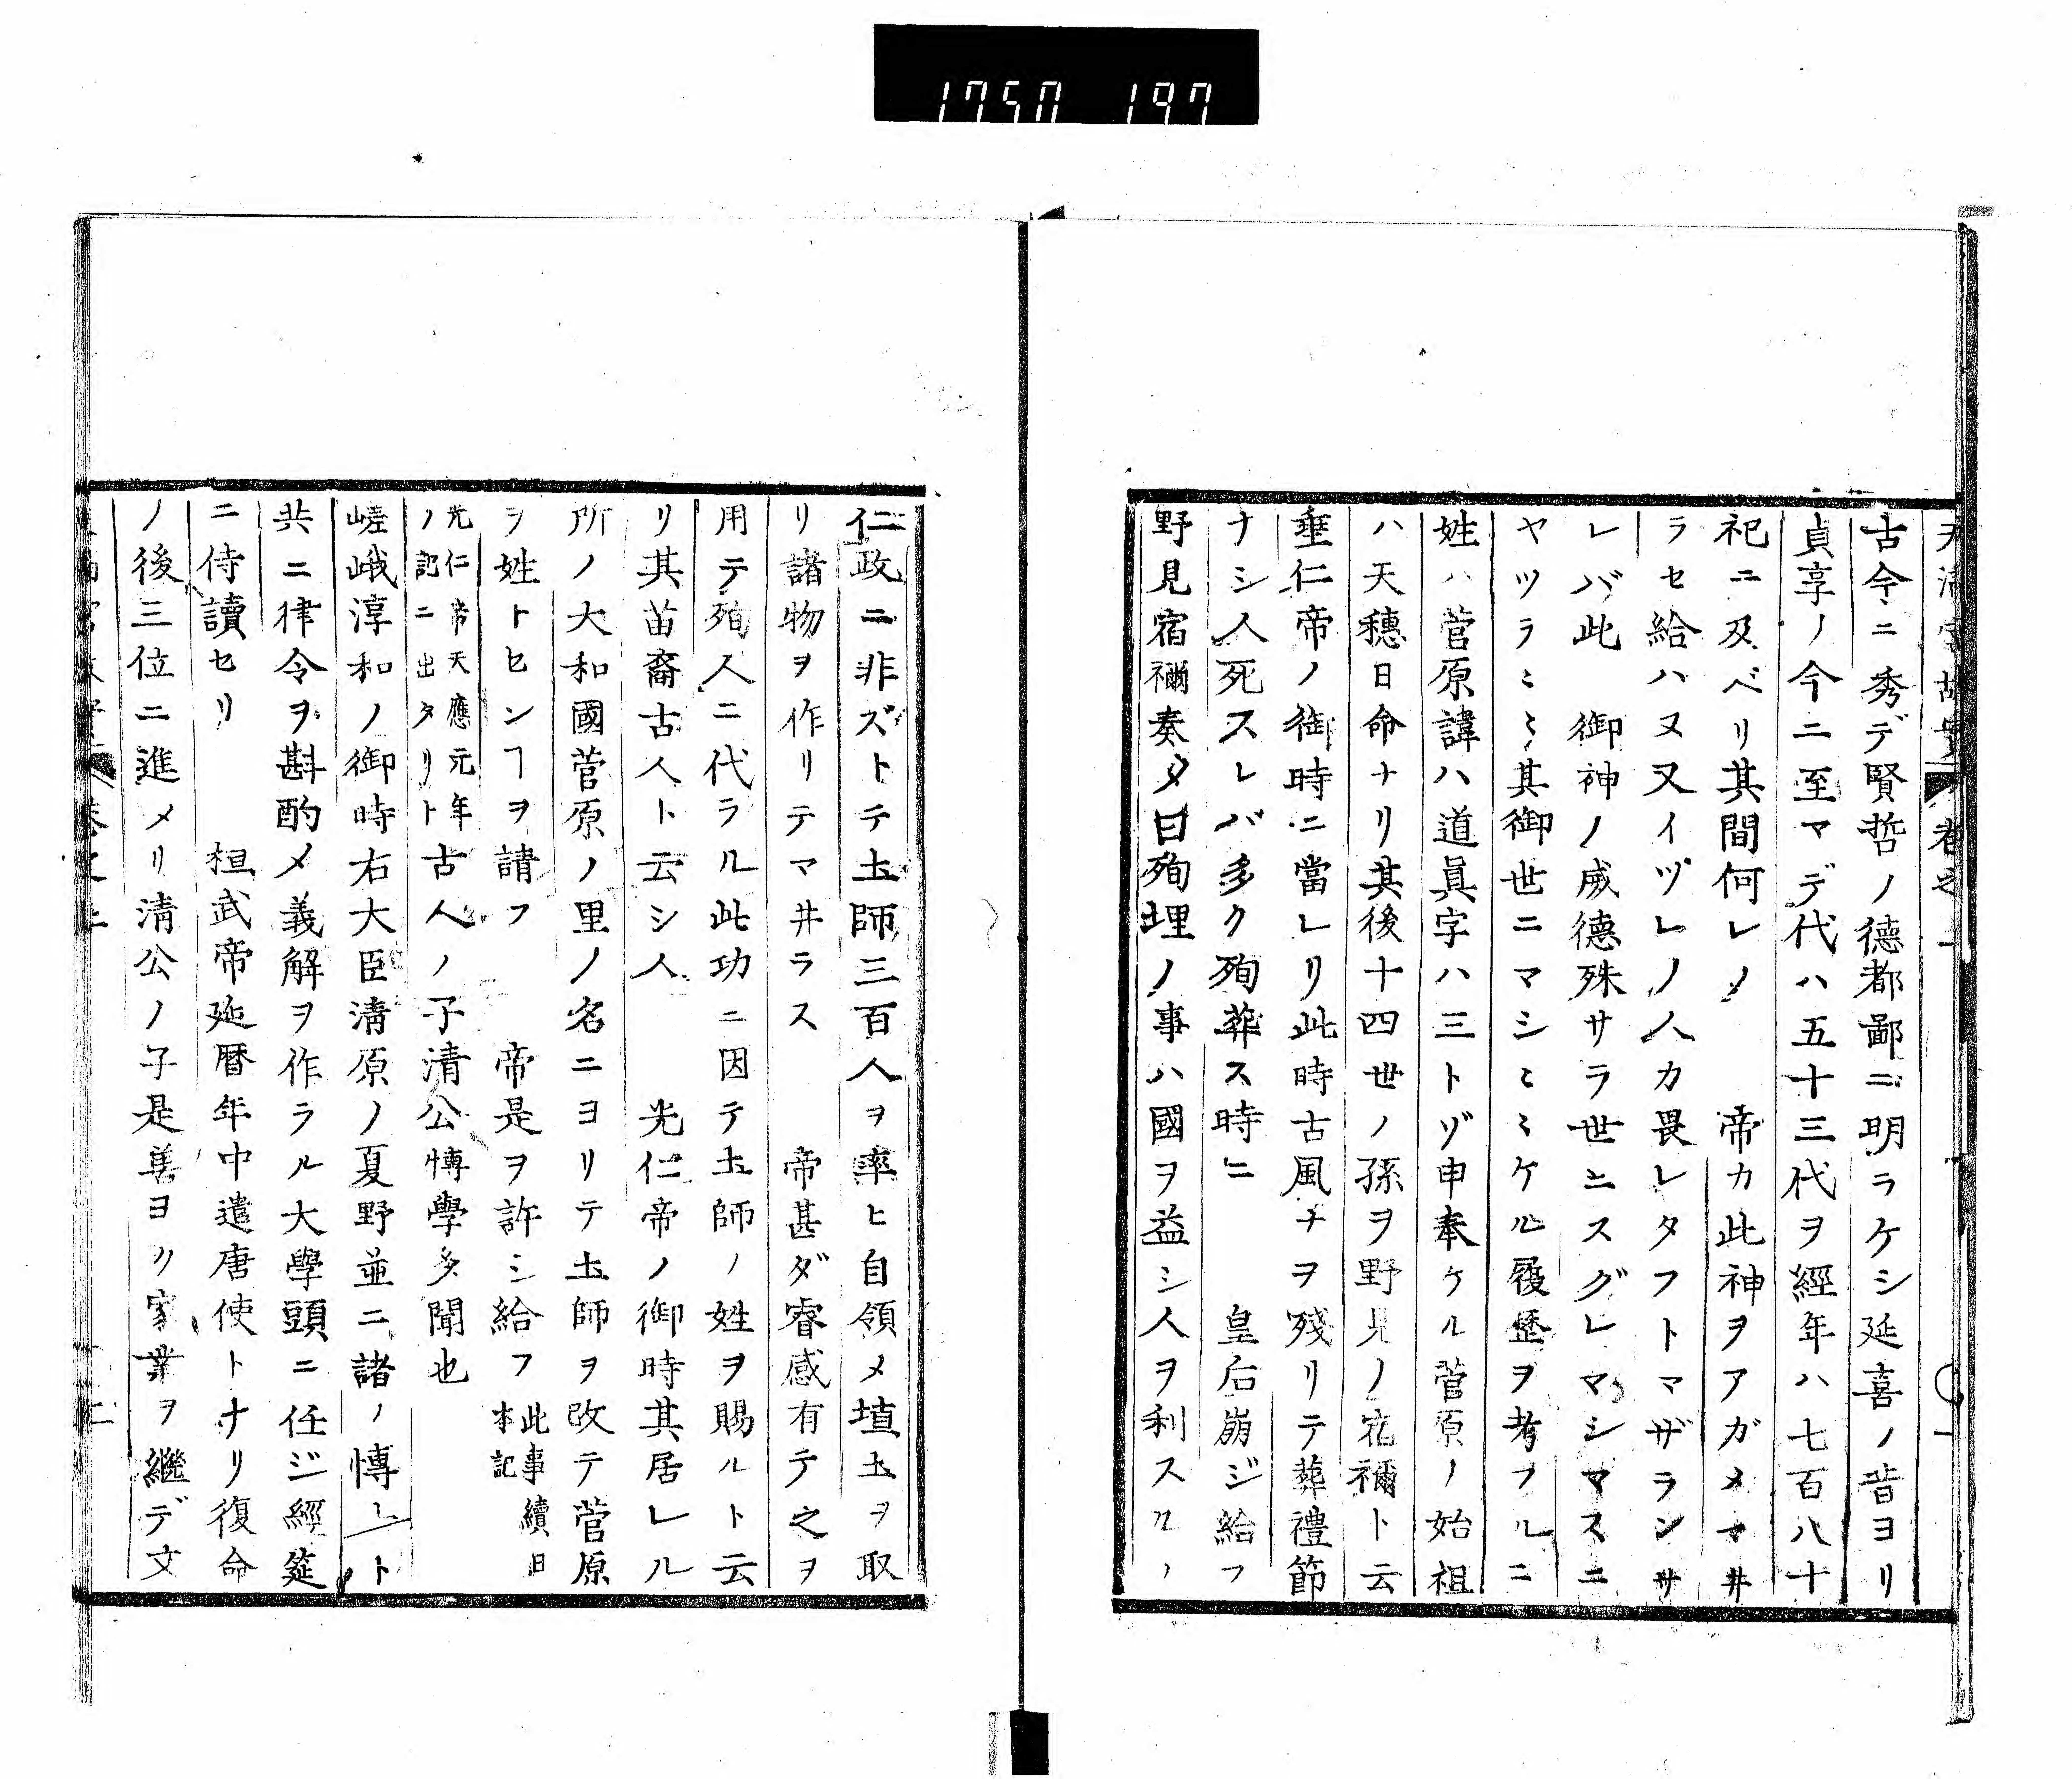 1750 197
古今ニ秀デ賢哲ノ德都鄙ニ明ラケシ延喜ノ昔ヨリ
貞享ノ今ニ至マデ代ハ五十三代ヲ經年ハ七百八十
祀ニ及ベリ其間何レノ 帝カ此神ヲアガメマ井
ラセ給ハヌ又イヅレノ人カ畏レタフトマザランサ
レバ此 御神ノ威德殊サラ世ニスグレマシマスニ
ヤツラミミ其御世ニマシミミケル履歷ヲ考フルニ
姓ハ菅原諱ハ道眞字ハ三トゾ申奉ケル菅原ノ始祖
ハ天穗日命ナリ其後十四世ノ孫ヲ野見ノ宿禰ト云
垂仁帝ノ御時ニ當レリ此時古風ナヲ殘リテ葬禮節
ナシ人死スレバ多ク殉葬ス時ニ 皇后崩ジ給フ
野見宿禰奏メ曰殉埋ノ事ハ國ヲ益シ人ヲ利スルノ
仁政ニ非ズトテ土師三百人ヲ率ヒ自領メ埴土ヲ取
リ諸物ヲ作リテマ井ラス 帝甚ダ睿感有テ之ヲ
用テ殉人ニ代ラル此功ニ因テ土師ノ姓ヲ賜ルト云
リ其苗裔古人ト云シ人 光仁帝ノ御時其居レル
所ノ大和國菅原ノ里ノ名ニヨリテ土師ヲ改テ菅原
ヲ姓トセンヿヲ請フ 帝是ヲ許シ給フ此事續日本記
光仁帝天應元年ノ記ニ出タリト古人ノ子清公博學多聞也
嵯峨淳和ノ御時右大臣清原ノ夏野並ニ諸ノ博士ト
共ニ律令ヲ斟酌メ義解ヲ作ラル大學頭ニ任ジ經筵
ニ侍讀セリ 桓武帝延曆年中遣唐使トナリ復命
ノ後三位ニ進メリ清公ノ子是善ヨク家業ヲ繼デ文